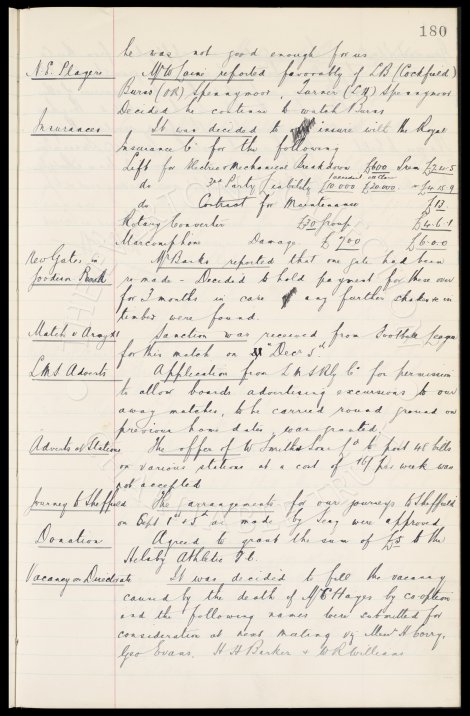 180
he was not good enough for us
N.E. Players Mr W Laini reported favorably of LB (Cockfield)
Burns (OR) Spennymoor, Turner (LH) Spennymoor
Decided he continue to watch Burns
Insurances It was decided to insure with the Royal
Insurance Co for the following
Left for Electric Mechanical Breakdown £600 Sum
do 3rd Party Liability £10.000 £20.000 £4.15.9
do Contract for Maintenance £12
Rotary Converter £4.6.1
Marconiphone Damage £6.0.0
New Gates in Goodison Road Mr Banks reported that one gate had been
re-made - Decided to hold payment for these over
for 3 months in case any further in
timber were found.
Match v Sanction was received from Football League
for this match on "Decr 5th"
LMS Adverts Application from LMS Rly Co for permission
to allow boards advertising excursions to our
away matches, to be carried round ground on
previous home dates, was granted.
Adverts at Stations The offer of W Smith & Son Ld to post 48 bills
on various stations at a cost of per week was
not accepted
Journey to Sheffield The arrangements for our journeys to Sheffield
on Sept 1st & 5th as made by Secy were approved
Donation Agreed to grant the sum of £5 to the
Helsby Athletic F.C.
Vacancy on Directorate It was decided to fill the vacancy
caused by the death of Mr C Hayes by co-option
and the following names were submitted for
consideration at next meeting viz Messrs H
Geo Evans, H H Barker & W R Williams